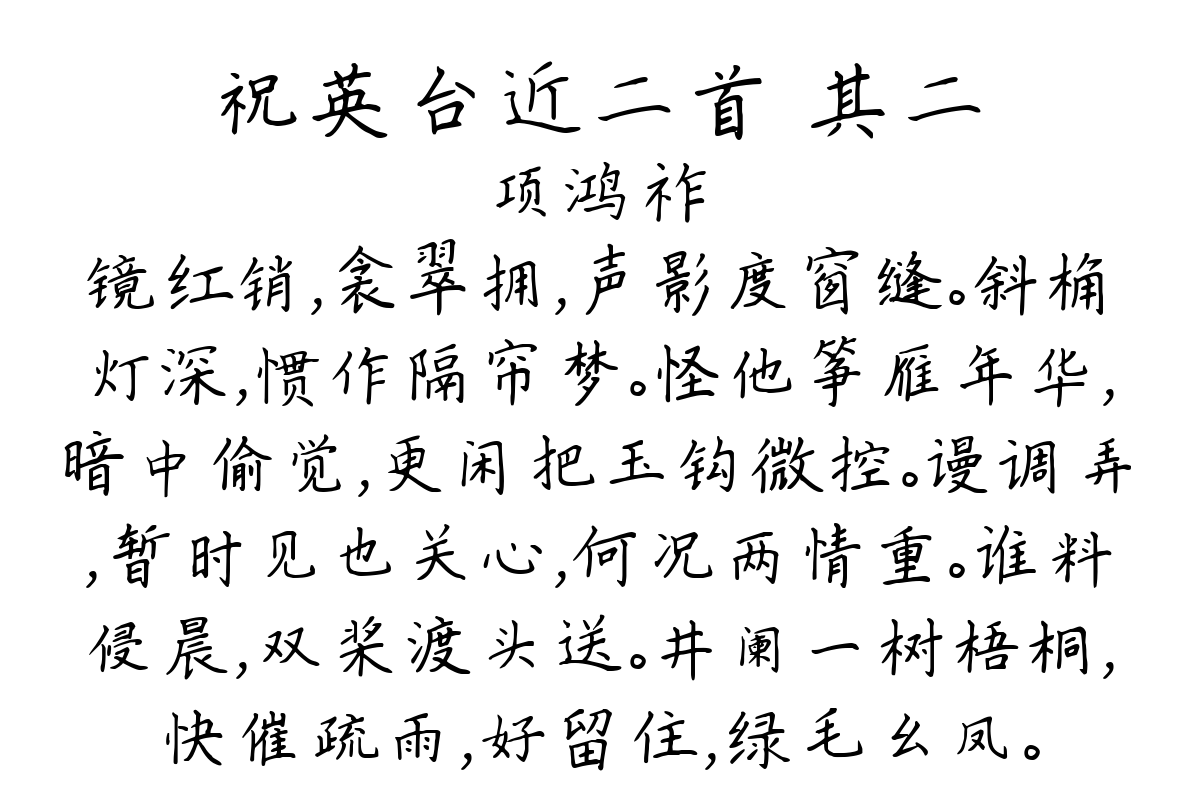 祝英台近二首 其二
项鸿祚
镜红销,衾翠拥,声影度窗缝。斜桷
灯深,惯作隔帘梦。怪他筝雁年华,
暗中偷觉,更闲把玉钩微控。谩调弄
,暂时见也关心,何况两情重。谁料
侵晨,双桨渡头送。井阑一树梧桐,
快催疏雨,好留住,绿毛幺凤。